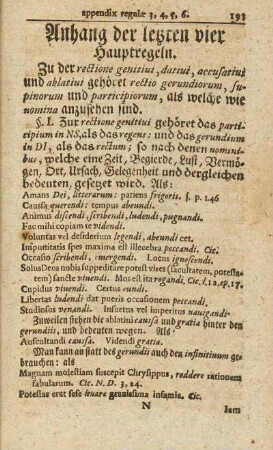 appendix regulæ 3, 4, 5, 6. 193
Anhang der letzten vier
Hauptregeln.
Zu der rectione genitivi, dativi, accusativi
und ablativi gehöret rectio gerundiorum, su-
pinorum und participiorum, als welche wie
nomina anzusehen sind.
§. I. Zur rectione genitivi gehöret das parti-
cipium in NS, als das regens: und das gerundium
in DI, als das rectum; so nach denen nomini-
bus, welche eine Zeit, Begierde, Lust, Vermö-
gen, Ort, Ursach, Gelegenheit und dergleichen
bedeuten, gesetzt wird. Als:
Amans Dei, litterarum: patiens frigoris. s. p. 146
Causa querendi: tempus abeundi.
Animus discendi, scribendi, ludendi, pugnandi.
Fac mihi copiam te videndi.
Voluntas vel desiderium legendi, abeundi cet.
Impunitatis spes maxima est illecebra peccandi. Cic.
Occasio scribendi, emergendi. Locus ignoscendi.
Solus Deus nobis suppeditare potest vires (facultatem, potesta-
tem) sancte vivendi. Mos est ita rogandi Cic. l. 12, ep. 17.
Cupidus vivendi. Certus eundi.
Libertas ludendi dat pueris occasionem peccandi.
Studiosus venandi. Insuetus vel imperitus navigandi.
Zuweilen stehen die ablativi caussa und gratia hinter den
gerundiis, und bedeuten wegen. Als:
Auscultandi caussa. Videndi gratia.
Man kann an statt des gerundii auch den infinitivum ge-
brauchen: als
Magnam molestiam suscepit Chrysippus, reddere rationem
fabularum. Cic. N. D. 3, 24.
Potestas erat sese levare gravissima infamia. Cic.
N Iam